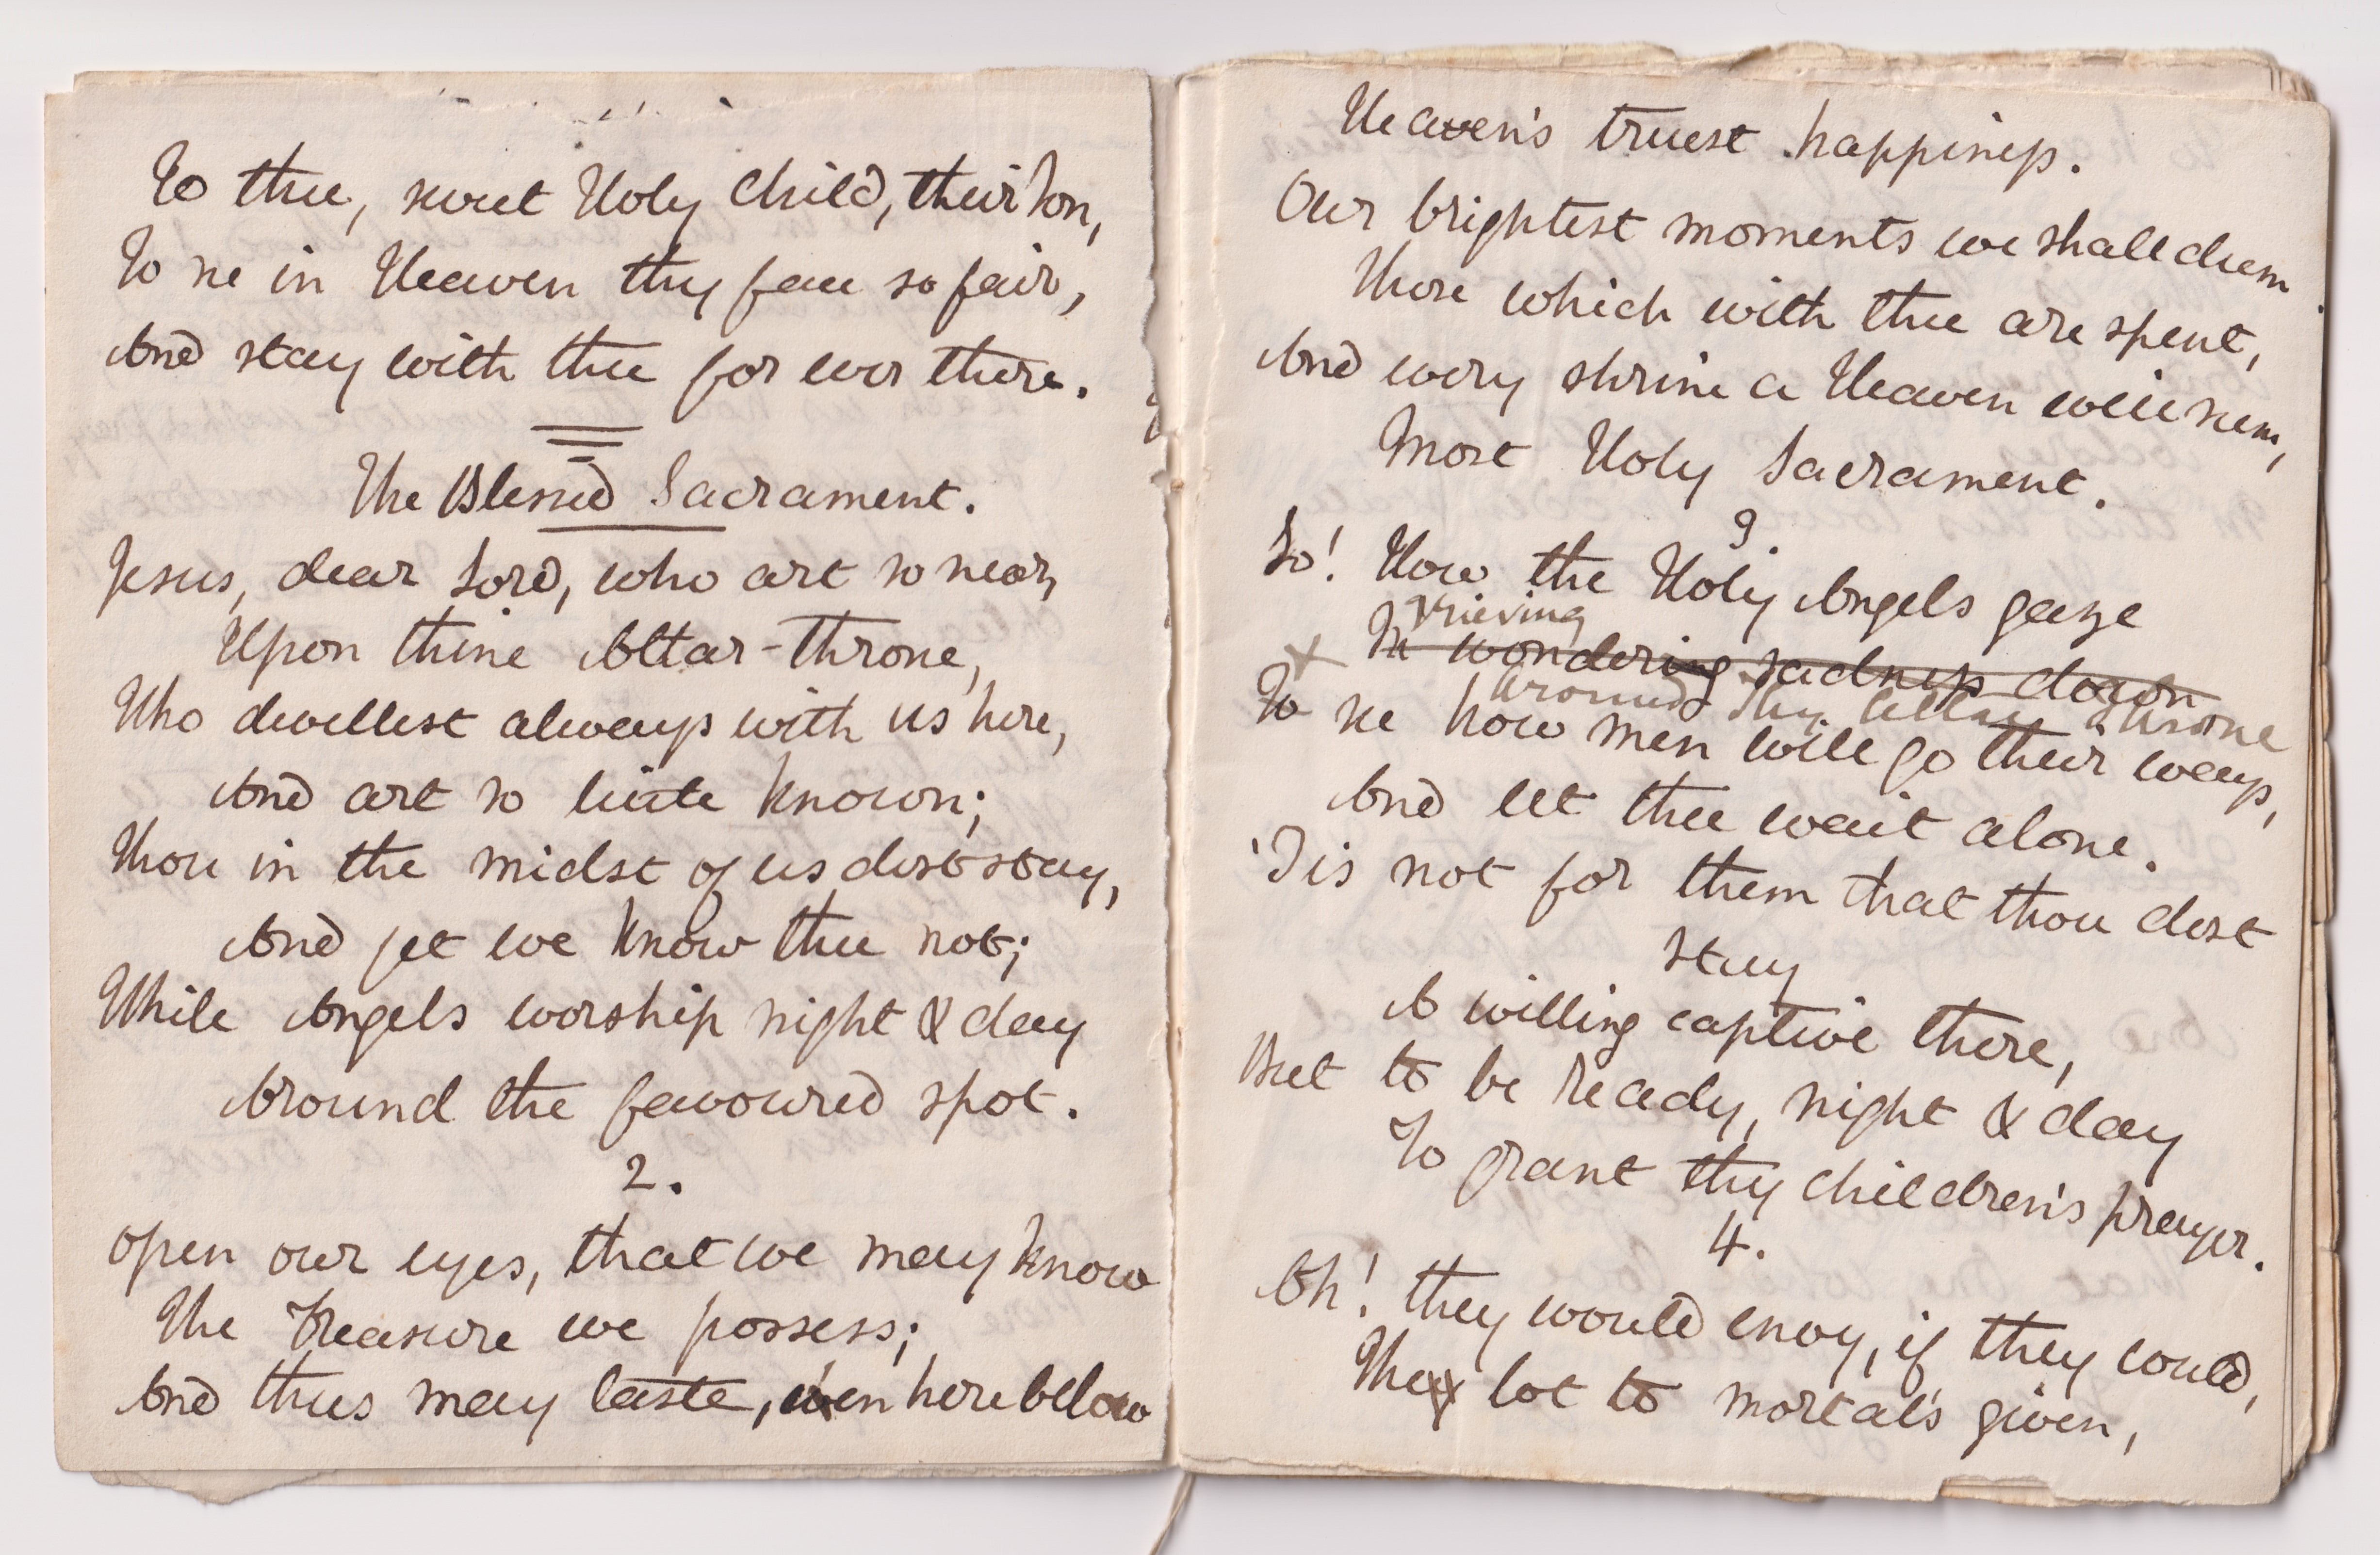 To thee, sweet Holy Child, their Son,
To see in Heaven thy face so fair,
And stay with thee for ever there.
The Blessed Sacrament.
Jesus, dear Lord, who art so near,
Upon thine Altar-Throne,
Who dwellest always with us here,
And art so little known;
Thou in the midst of us dost stay,
And yet we know thee not;
While Angels worship night & day
Around the favoured spot.
2.
Open our eyes, that we may know
The Treasure we possess;
And thus may taste, e'en here below
Heaven's truest happiness.
Our brightest moments we shall deem
Those which with thee are spent,
And every shrine a Heaven will seem,
Most Holy Sacrament.
3.
Lo! How the Holy Angels gaze
Grieving
x In wondering sadness down
Around Thy Altar Throne
To see how men will go their ways,
And let thee wait alone.
'Tis not for them that thou dost
stay
A willing captive there,
But to be ready, night & day
To grant thy children's prayer.
4.
Ah! they would envy, if they could,
The lot to mortals given,